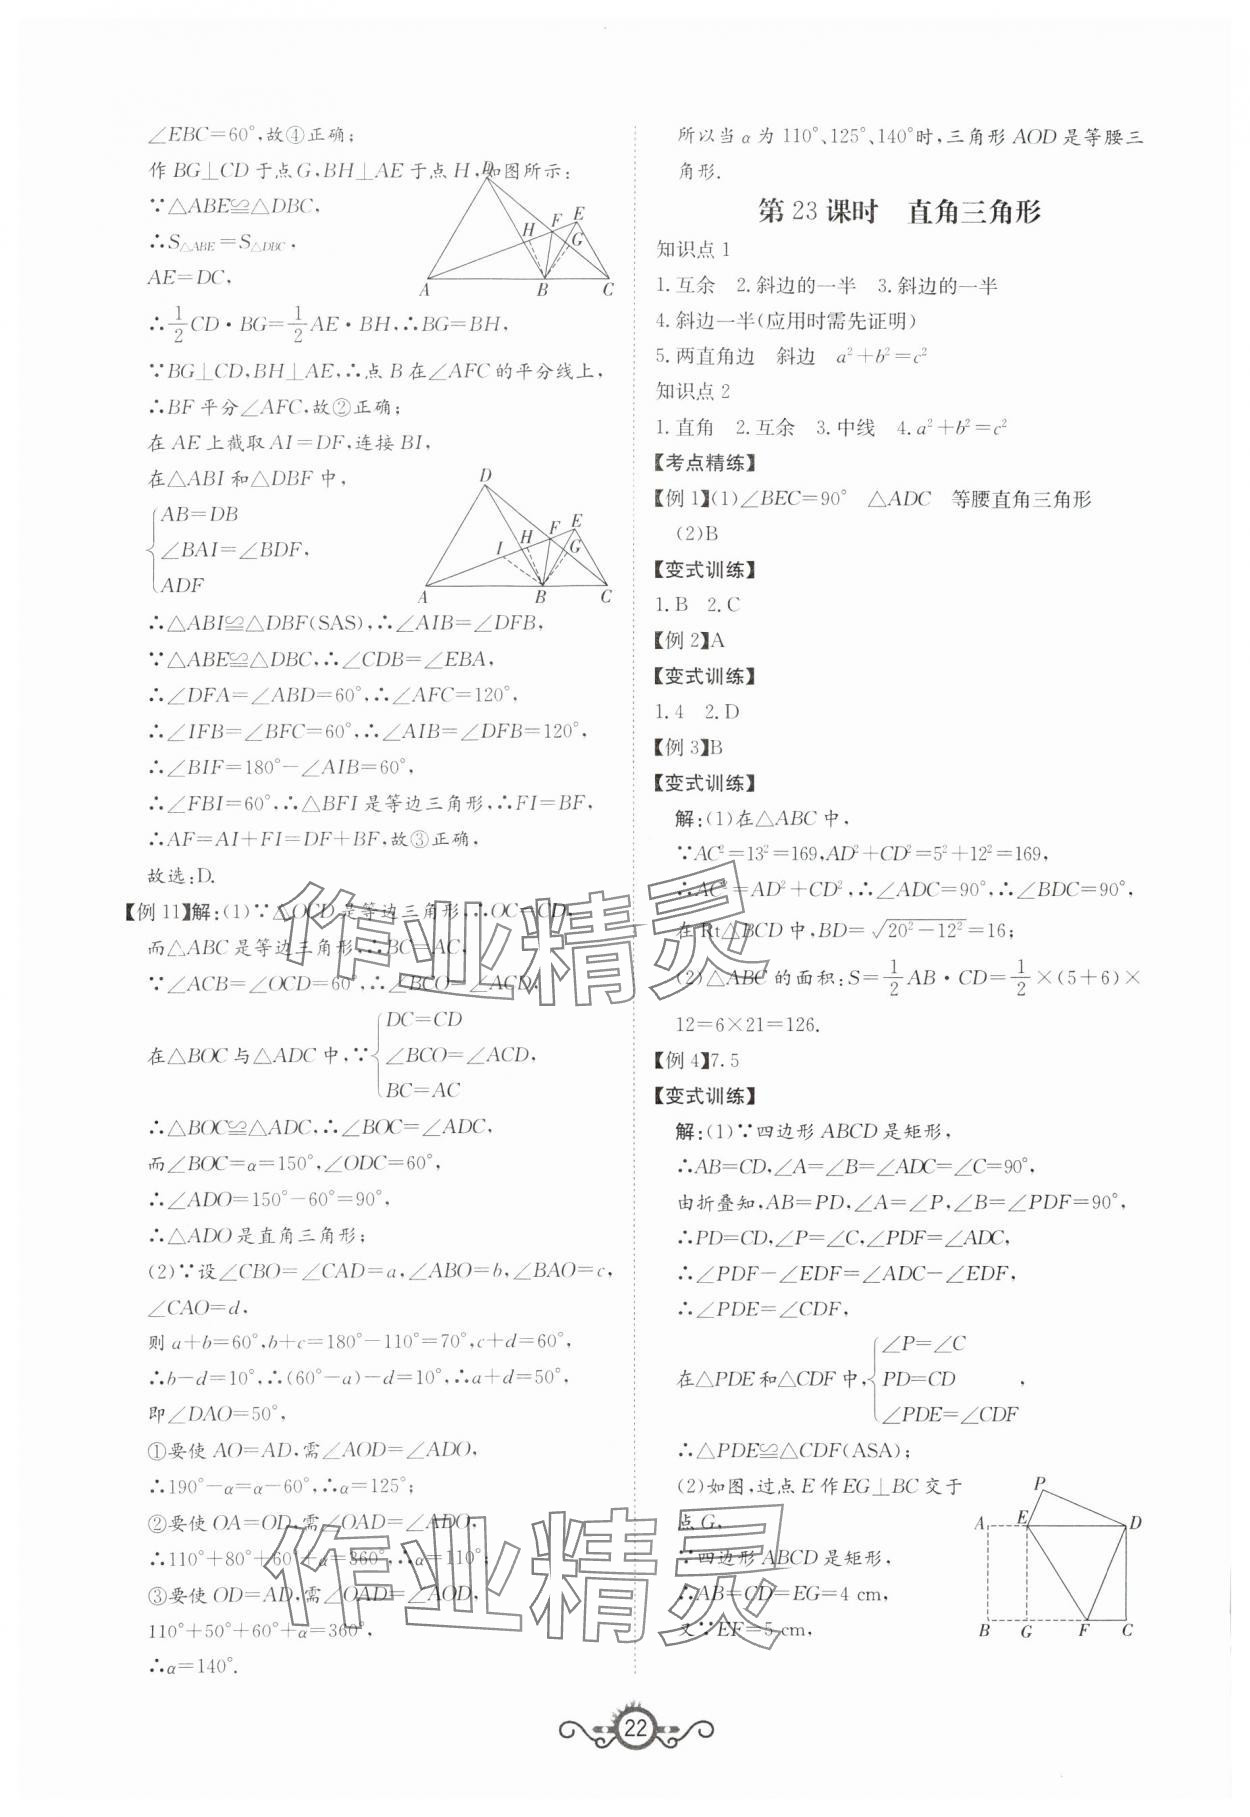 ∠EBC=60°,故④正确;
作BG⊥CD于点G,BH⊥AE于点H,如图所示:
∵△ABE≌△DBC,
∴S△ABE=S△DBC,
AE=DC,
∴1/2CD·BG=1/2AE·BH,∴BG=BH,
∵BG⊥CD,BH⊥AE,∴点B在∠AFC的平分线上,
∴BF平分∠AFC,故②正确;
在AE上截取AI=DF,连接BI,
在△ABI和△DBF中,
AB=DB
∠BAI=∠BDF,
ADF
∴△ABI≌△DBF(SAS),∴∠AIB=∠DFB,
∵△ABE≌△DBC,∴∠CDB=∠EBA,
∴∠DFA=∠ABD=60°,∴∠AFC=120°,
∴∠IFB=∠BFC=60°,∴∠AIB=∠DFB=120°,
∴∠BIF=180°-∠AIB=60°,
∴∠FBI=60°,∴△BFI是等边三角形,∴FI=BF,
∴AF=AI+FI=DF+BF,故③正确,
故选:D.
【例11】解:(1)∵△OCD是等边三角形,∴OC=CD,
而△ABC是等边三角形,∴BC=AC,
∵∠ACB=∠OCD=60°,∴∠BCO=∠ACD.
在△BOC与△ADC中,∵
DC=CD
∠BCO=∠ACD,
BC=AC
∴△BOC≌△ADC,∴∠BOC=∠ADC,
而∠BOC=α=150°,∠ODC=60°,
∴∠ADO=150°-60°=90°,
∴△ADO是直角三角形;
(2)∵设∠CBO=∠CAD=a,∠ABO=b,∠BAO=c,
∠CAO=d,
则a+b=60°,b+c=180°-110°=70°,c+d=60°,
∴b-d=10°,∴(60°-a)-d=10°,∴a+d=50°,
即∠DAO=50°,
①要使AO=AD,需∠AOD=∠ADO,
∴190°-α=α-60°,∴α=125°;
②要使OA=OD,需∠OAD=∠ADO,
∴110°+80°+60°+α=360°,∴α=110°;
③要使OD=AD,需∠OAD=∠AOD,
110°+50°+60°+α=360°,
∴α=140°.
D
H F E
G
A B C
D
F E
H
I G
A B C
所以当α为110°、125°、140°时,三角形AOD是等腰三
角形.
第23课时 直角三角形
知识点1
1.互余 2.斜边的一半 3.斜边的一半
4.斜边一半(应用时需先证明)
5.两直角边 斜边 a²+b²=c²
知识点2
1.直角 2.互余 3.中线 4.a²+b²=c²
【考点精练】
【例1】(1)∠BEC=90° △ADC 等腰直角三角形
(2)B
【变式训练】
1.B 2.C
【例2】A
【变式训练】
1.4 2.D
【例3】B
【变式训练】
解:(1)在△ABC中,
∵AC²=13²=169,AD²+CD²=5²+12²=169,
∴AC²=AD²+CD²,∴∠ADC=90°,∴∠BDC=90°,
在Rt△BCD中,BD=√(20²-12²)=16;
(2)△ABC的面积:S=1/2AB·CD=1/2×(5+6)×
12=6×21=126.
【例4】7.5
【变式训练】
解:(1)∵四边形ABCD是矩形,
∴AB=CD,∠A=∠B=∠ADC=∠C=90°,
由折叠知,AB=PD,∠A=∠P,∠B=∠PDF=90°,
∴PD=CD,∠P=∠C,∠PDF=∠ADC,
∴∠PDF-∠EDF=∠ADC-∠EDF,
∴∠PDE=∠CDF,
在△PDE和△CDF中,
∠P=∠C
PD=CD ,
∠PDE=∠CDF
∴△PDE≌△CDF(ASA);
(2)如图,过点E作EG⊥BC交于
点G,
∵四边形ABCD是矩形,
∴AB=CD=EG=4 cm,
又∵EF=5 cm,
P
A E D
B G F C
作业精灵
作业精灵
22